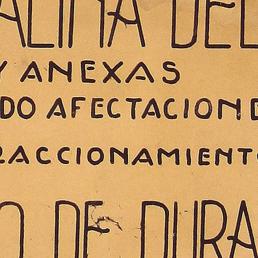 ALINA DEL
Y ANEXAS
DO AFECTACION D
RACCIONAMIENTO
O DE DURA